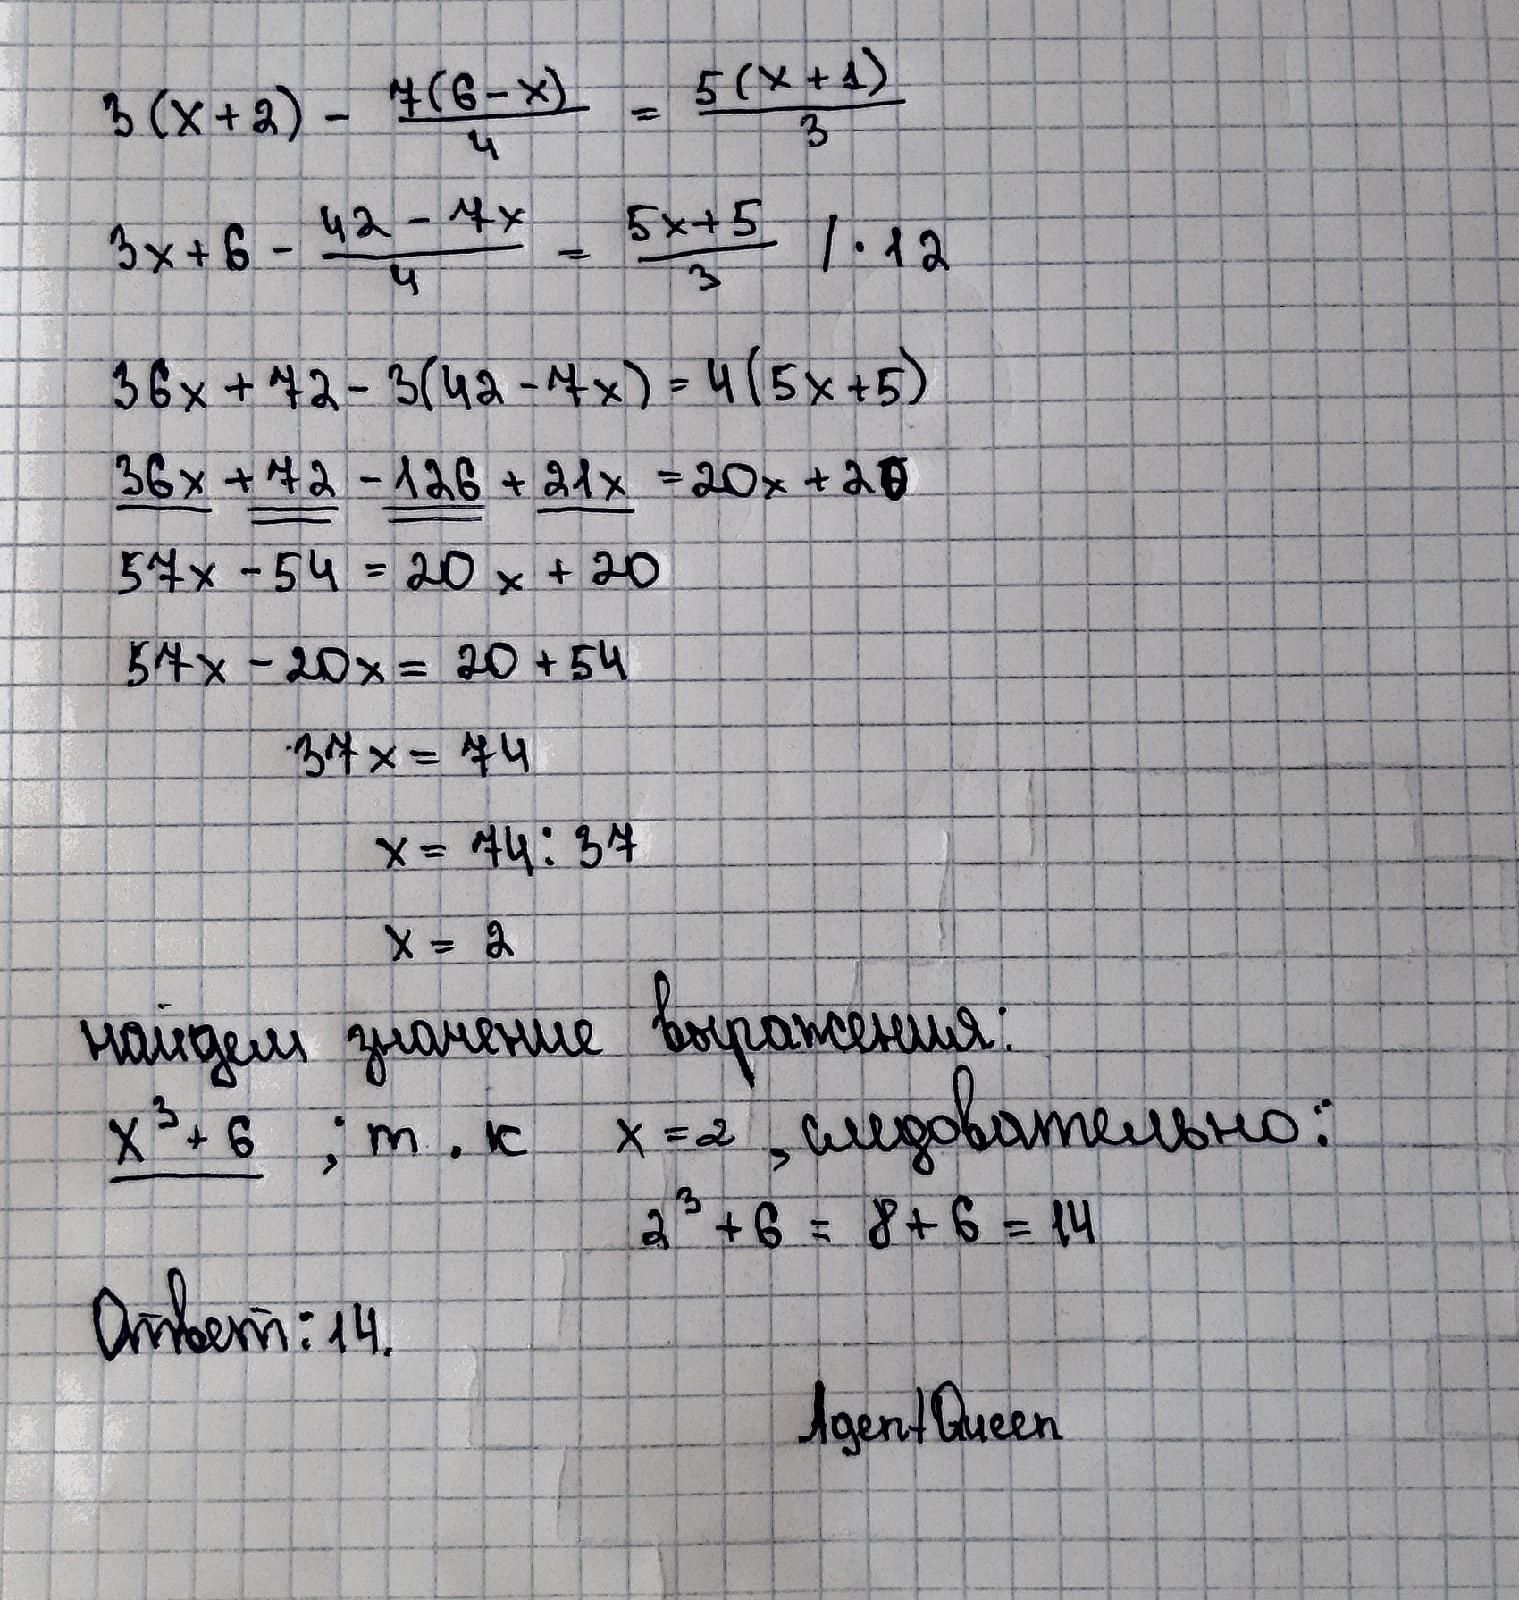 3(x+2) - 7(6-x)/4 = 5(x+1)/3
3x+6 - 42-7x/4 = 5x+5/3 /·12
36x+72-3(42-7x)=4(5x+5)
36x+72-126+21x=20x+20
57x-54=20x+20
57x-20x=20+54
37x=74
x=74:37
x=2
найдем значение выражения:
x³+6 ; т.к x=2, следовательно:
2³+6=8+6=14
Ответ: 14.
AgentQueen